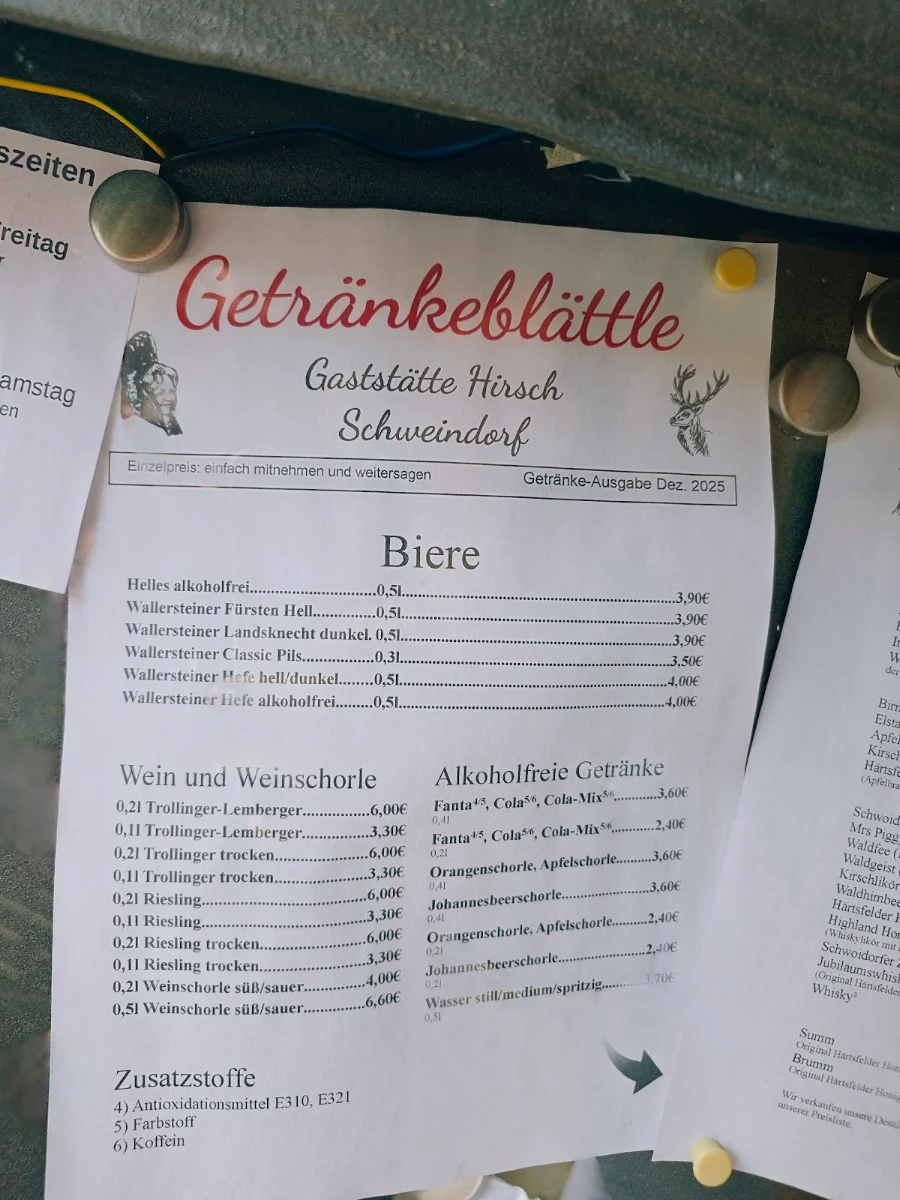 szeiten
reitag
r
amstag
en
Getränkeblättle
Gaststätte Hirsch
Schweindorf
Einzelpreis: einfach mitnehmen und weitersagen Getränke-Ausgabe Dez. 2025
Biere
Helles alkoholfrei..............................0,5l..................................................................3,90€
Wallersteiner Fürsten Hell...............0,5l..................................................................3,90€
Wallersteiner Landsknecht dunkel. 0,5l..................................................................3,90€
Wallersteiner Classic Pils.................0,3l..................................................................3,50€
Wallersteiner Hefe hell/dunkel........0,5l..................................................................4,00€
Wallersteiner Hefe alkoholfrei.........0,5l..................................................................4,00€
Wein und Weinschorle
0,2l Trollinger-Lemberger.................6,00€
0,1l Trollinger-Lemberger.................3,30€
0,2l Trollinger trocken.......................6,00€
0,1l Trollinger trocken.......................3,30€
0,2l Riesling.........................................6,00€
0,1l Riesling.........................................3,30€
0,2l Riesling trocken...........................6,00€
0,1l Riesling trocken...........................3,30€
0,2l Weinschorle süß/sauer...............4,00€
0,5l Weinschorle süß/sauer...............6,60€
Alkoholfreie Getränke
Fanta⁴/⁵, Cola⁵/⁶, Cola-Mix⁵/⁶...........3,60€
0,4l
Fanta⁴/⁵, Cola⁵/⁶, Cola-Mix⁵/⁶...........2,40€
0,2l
Orangenschorle, Apfelschorle.........3,60€
0,4l
Johannesbeerschorle......................3,60€
0,4l
Orangenschorle, Apfelschorle.........2,40€
0,2l
Johannesbeerschorle......................2,40€
0,2l
Wasser still/medium/spritzig...........3,70€
0,5l
Zusatzstoffe
4) Antioxidationsmittel E310, E321
5) Farbstoff
6) Koffein
W
der
Birn
Elsta
Apfel
Kirsch
Härtsfe
(Apfelbra
Schwoid
Mrs Pigg
Waldfee (
Waldgeist
Kirschlikör
Waldhimbee
Härtsfelder H
Highland Hon
(Whiskylikör mit
Schwoidorfer
Jubiläumswhisk
(Original Härtsfelder
Whisky³
Summ
Original Härtsfelder Hon
Brumm
Original Härtsfelder Honig
Wir verkaufen unsere Destil
unserer Preisliste.